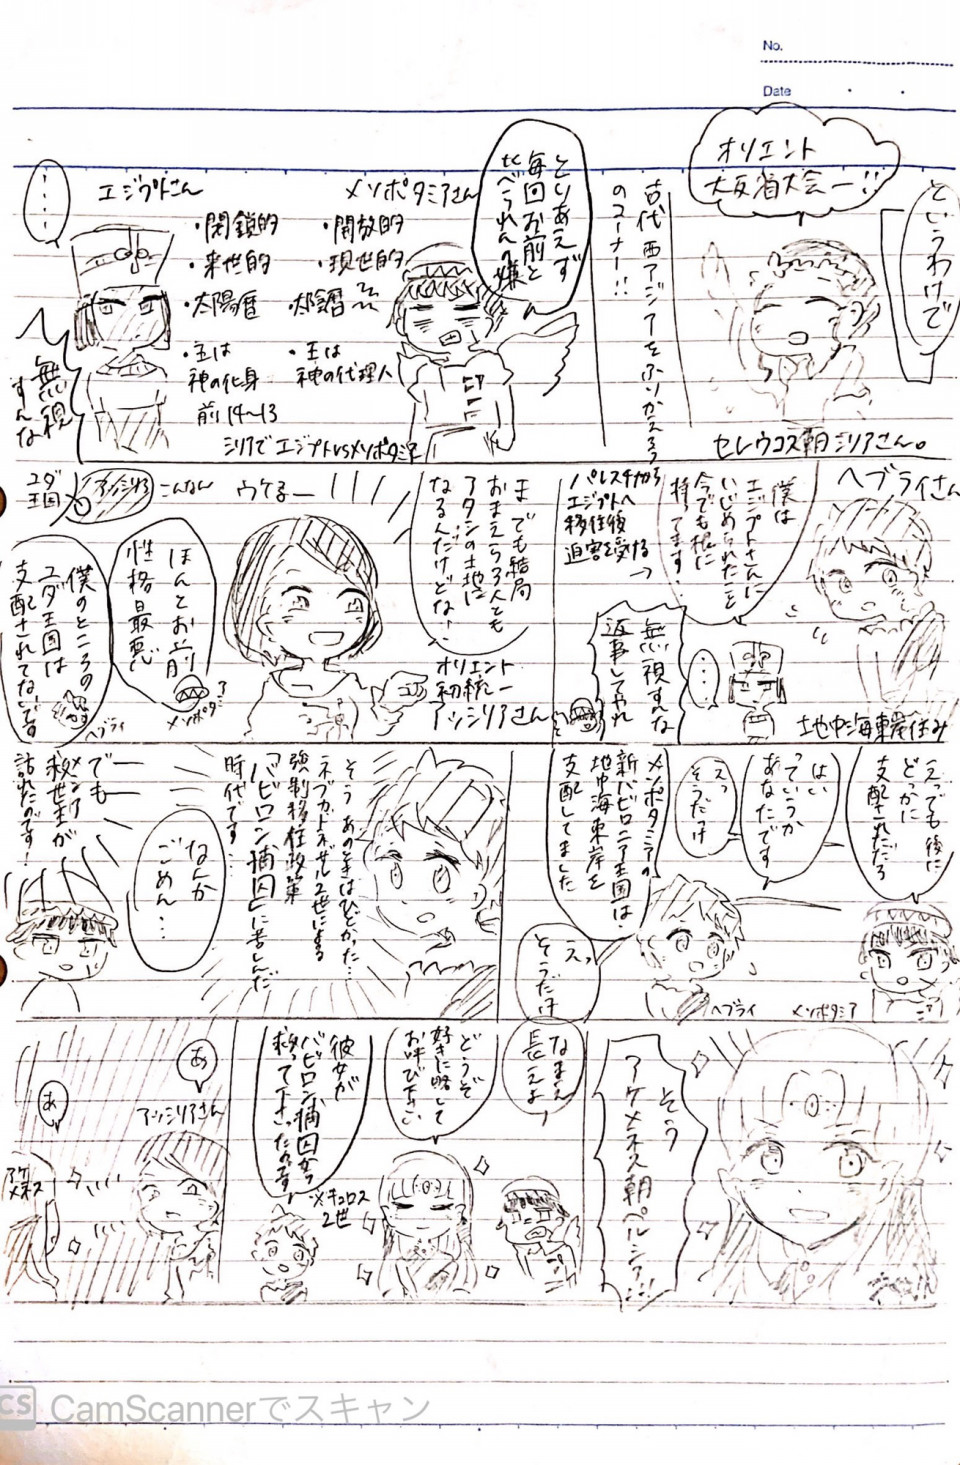 No.
Date
というわけで
オリエント
大反省大会ー!!
セレウコス朝シリアさん。
古代西アジアをふりかえろう
のコーナー!!
とりあえず
毎回お前と
比べられんの嫌
メソポタミアさん
・開放的
・現世的
・太陰暦
・王は
神の代理人
エジプトさん
・閉鎖的
・来世的
・太陽暦
・王は
神の化身
前14~13
シリアでエジプトvsメソポタミア
……
無視
すんな
ヘブライさん
僕は
エジプトさんに
いじめられたことを
今でも根に
持ってます!
パレスチナから
エジプトへ
移住後
迫害を受ける
→
地中海東岸住み
……
無視すんな
返事してやれ
までも結局
おまえら3人とも
アタシの土地に
なるんだけどなー!
オリエント
初統一
アッシリアさん
ウケるー
ほんとお前
性格最悪
メソポタミア
ユダ
王国
アッシリア
こんなん
僕のところの
ユダ王国は
支配されてないです
ヘブライ
えっでも後に
どっかに
支配されただろ
はい
っていうか
あなたです
えっ
そうだっけ
メソポタミアの
新バビロニア王国は
地中海東岸を
支配してました
えっ
そうだっけ
ヘブライ
メソポタミア
そうあのときはひどかった…
ネブカドネザル2世による
強制移住政策
「バビロン捕囚」に苦しんだ
時代です…
なんか
ごめん…
でも
救世主が
訪れたのです!
そう
アケメネス朝ペルシア!!
なまえ
長えよ
どうぞ
好きに略して
お呼び下さい
彼女が
バビロン捕囚から
救って下さったのです
※キュロス
2世
あ
アッシリアさん
あ
アケメネス
CS CamScannerでスキャン